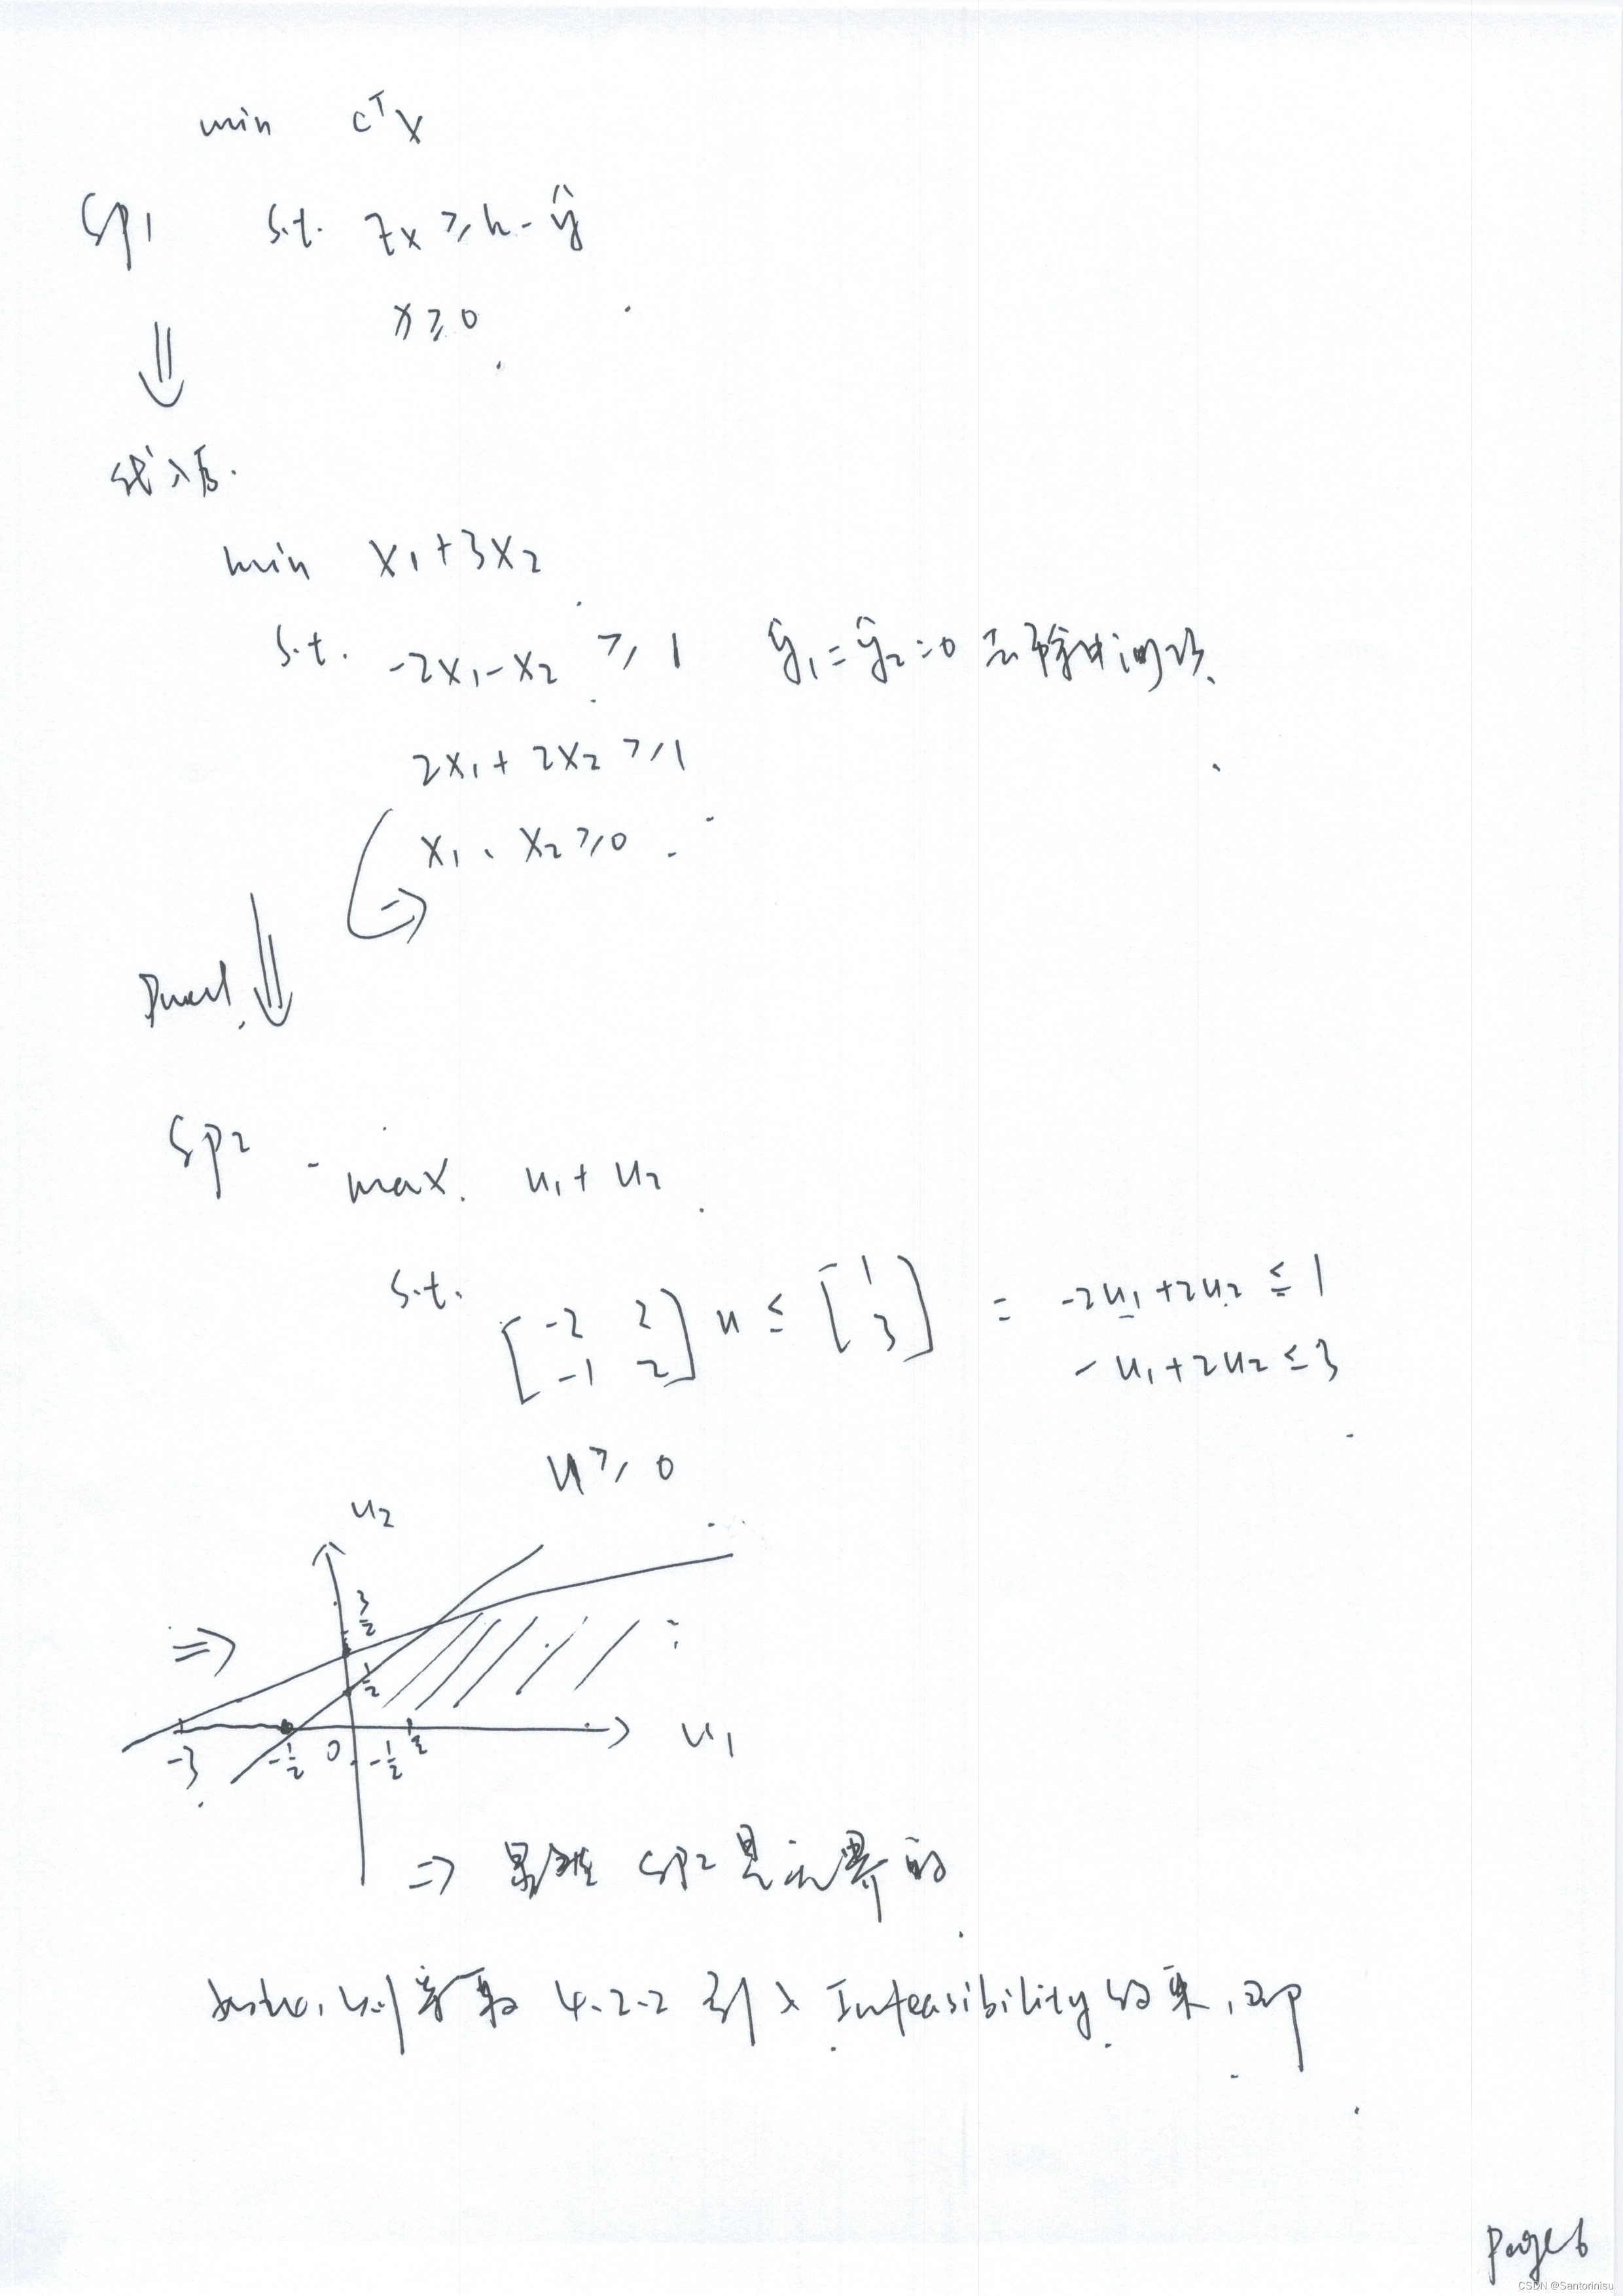 min cᵀx
SP1 s.t. Zx ≥ h - ŷ
x ≥ 0
代入后.
min x₁+3x₂
s.t. -2x₁-x₂ ≥ 1 ŷ₁=ŷ₂=0
2x₁+2x₂ ≥ 1
x₁、x₂ ≥ 0
Dual
SP2 max. u₁+u₂
s.t. [-2 2; -1 2] u ≤ [1; 3] = -2u₁+2u₂ ≤ 1
-u₁+2u₂ ≤ 3
u ≥ 0
u₂
⇒ 3/2
1/2
u₁
-3 -1/2 0 -1/2 1/2
⇒ 显然 SP2 是无界的
4.2.2 引入 Infeasibility 约束,即
Page6
CSDN @Santorinisu